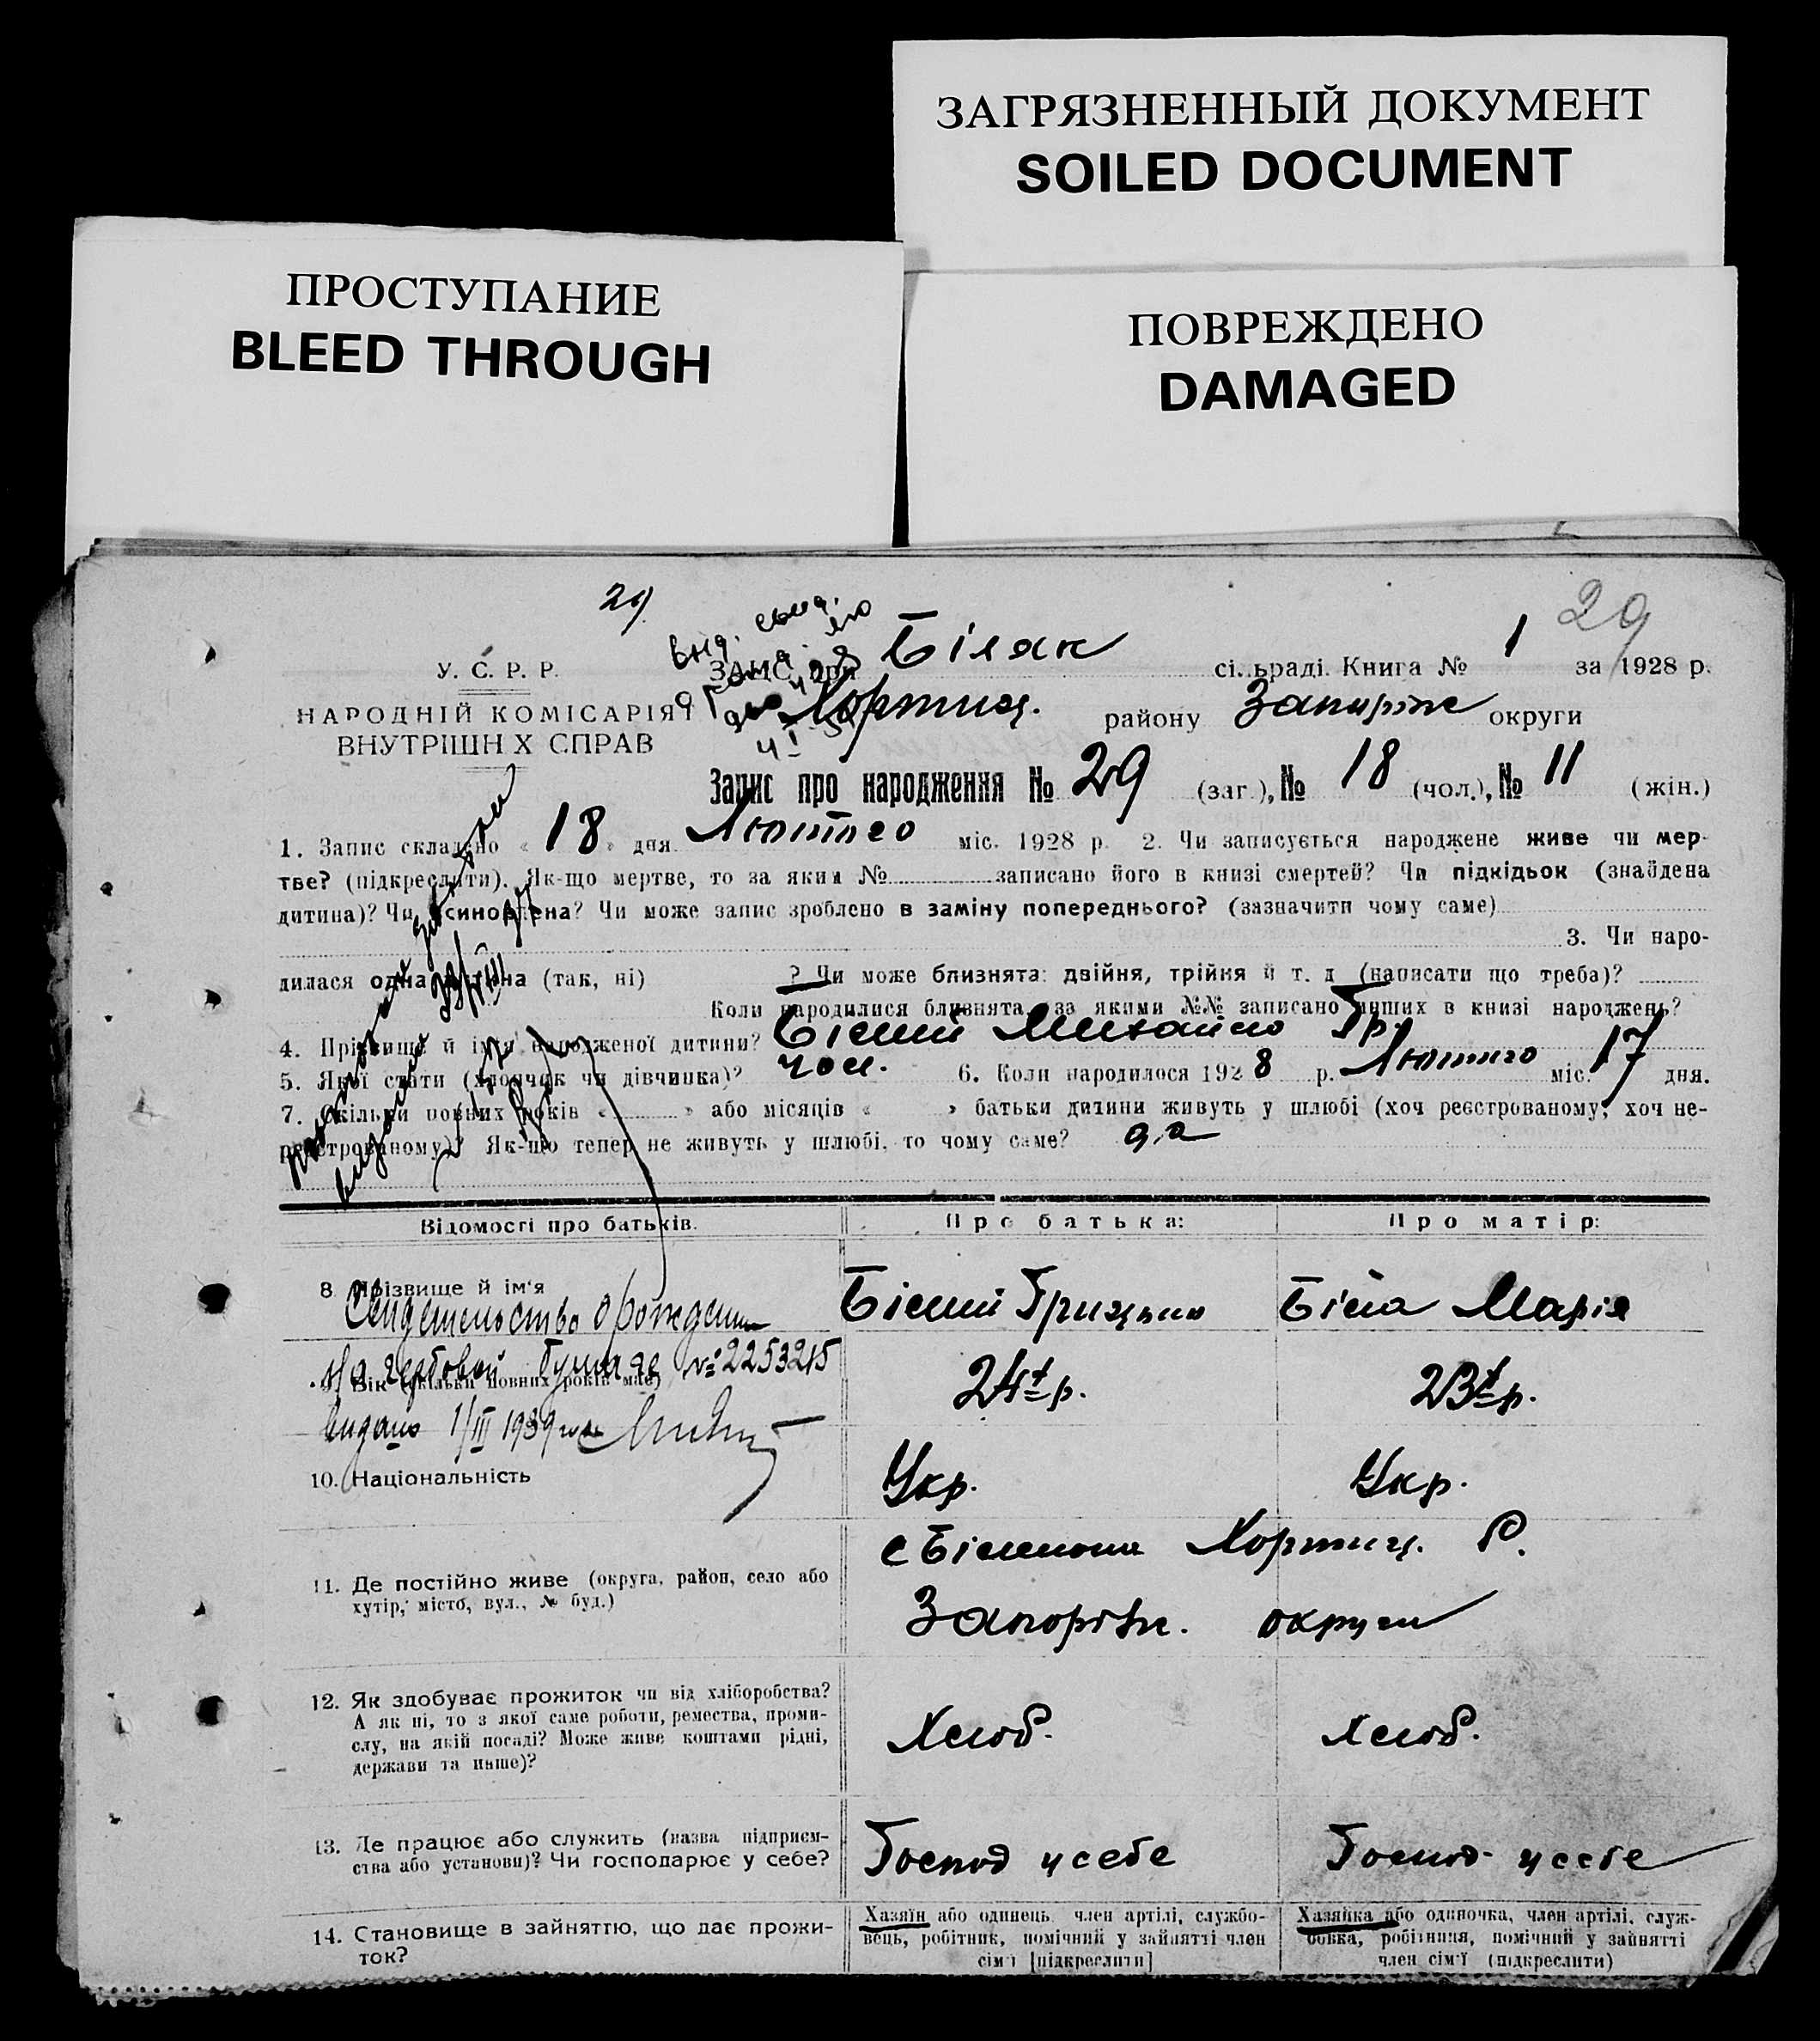 ЗАГРЯЗНЕННЫЙ ДОКУМЕНТ
SOILED DOCUMENT
ПРОСТУПАНИЕ
BLEED THROUGH
ПОВРЕЖДЕНО
DAMAGED
29 29
У. С. Р. Р.
НАРОДНІЙ КОМІСАРІЯТ
ВНУТРІШН Х СПРАВ
ЗАГС при Біляк сі..ьраді. Книга № 1 за 1928 р.
Хортиц. району Запоріж округи
Запис про народження № 29 (заг.), № 18 (чол.), № 11 (жін.)
1. Запис складено « 18 » дня Лютого міс. 1928 р. 2. Чи записується народжене живе чи мер-
тве? (підкреслити). Як-що мертве, то за яким № записано його в книзі смертей? Чи підкідьок (знайдена
дитина)? Чи усиновлена? Чи може запис зроблено в заміну попереднього? (зазначити чому саме)
3. Чи наро-
дилася одна дитина (так, ні) ? Чи може близнята: двійня, трійня й т. д. (написати що треба)?
Коли народилися близнята, за якими №№ записано інших в книзі народжень?
4. Прізвище й ім'я народженої дитини? Білий Михайло Гр.
5. Якої стати (хлопчик чи дівчинка)? чол. 6. Коли народилося 1928 р. Лютого міс. 17 дня.
7. Скільки повних років « » або місяців « » батьки дитини живуть у шлюбі (хоч реєстрованому, хоч не-
реєстрованому)? Як-що тепер не живуть у шлюбі, то чому саме? да
Відомості про батьків. Про батька: Про матір:
8. Прізвище й ім'я Білий Грицько Біла Марія
Свидетельство о рождении
на гербовой бумаге № 2253215
9. Вік (скільки повних років має) 24 р. 23 р.
видано 1/III 1939
10. Національність Укр. Укр.
11. Де постійно живе (округа, район, село або
хутір, місто, вул., № буд.)
с Хортиц. Р.
Запоріж. округи
12. Як здобуває прожиток чи від хліборобства?
А як ні, то з якої саме роботи, ремества, проми-
слу, на якій посаді? Може живе коштами рідні,
держави та инше)?
Хліб. Хліб.
13. Де працює або служить (назва підприєм-
ства або установи)? Чи господарює у себе?
Господ у себе Господ у себе
14. Становище в зайняттю, що дає прожи-
ток?
Хазяїн або одинець, член артілі, службо-
вець, робітник, помічний у зайнятті член
сім'ї [підкреслити]
Хазяйка або одиночка, член артілі, служ-
бовка, робітниця, помічний у зайнятті
член сім'ї (підкреслити)